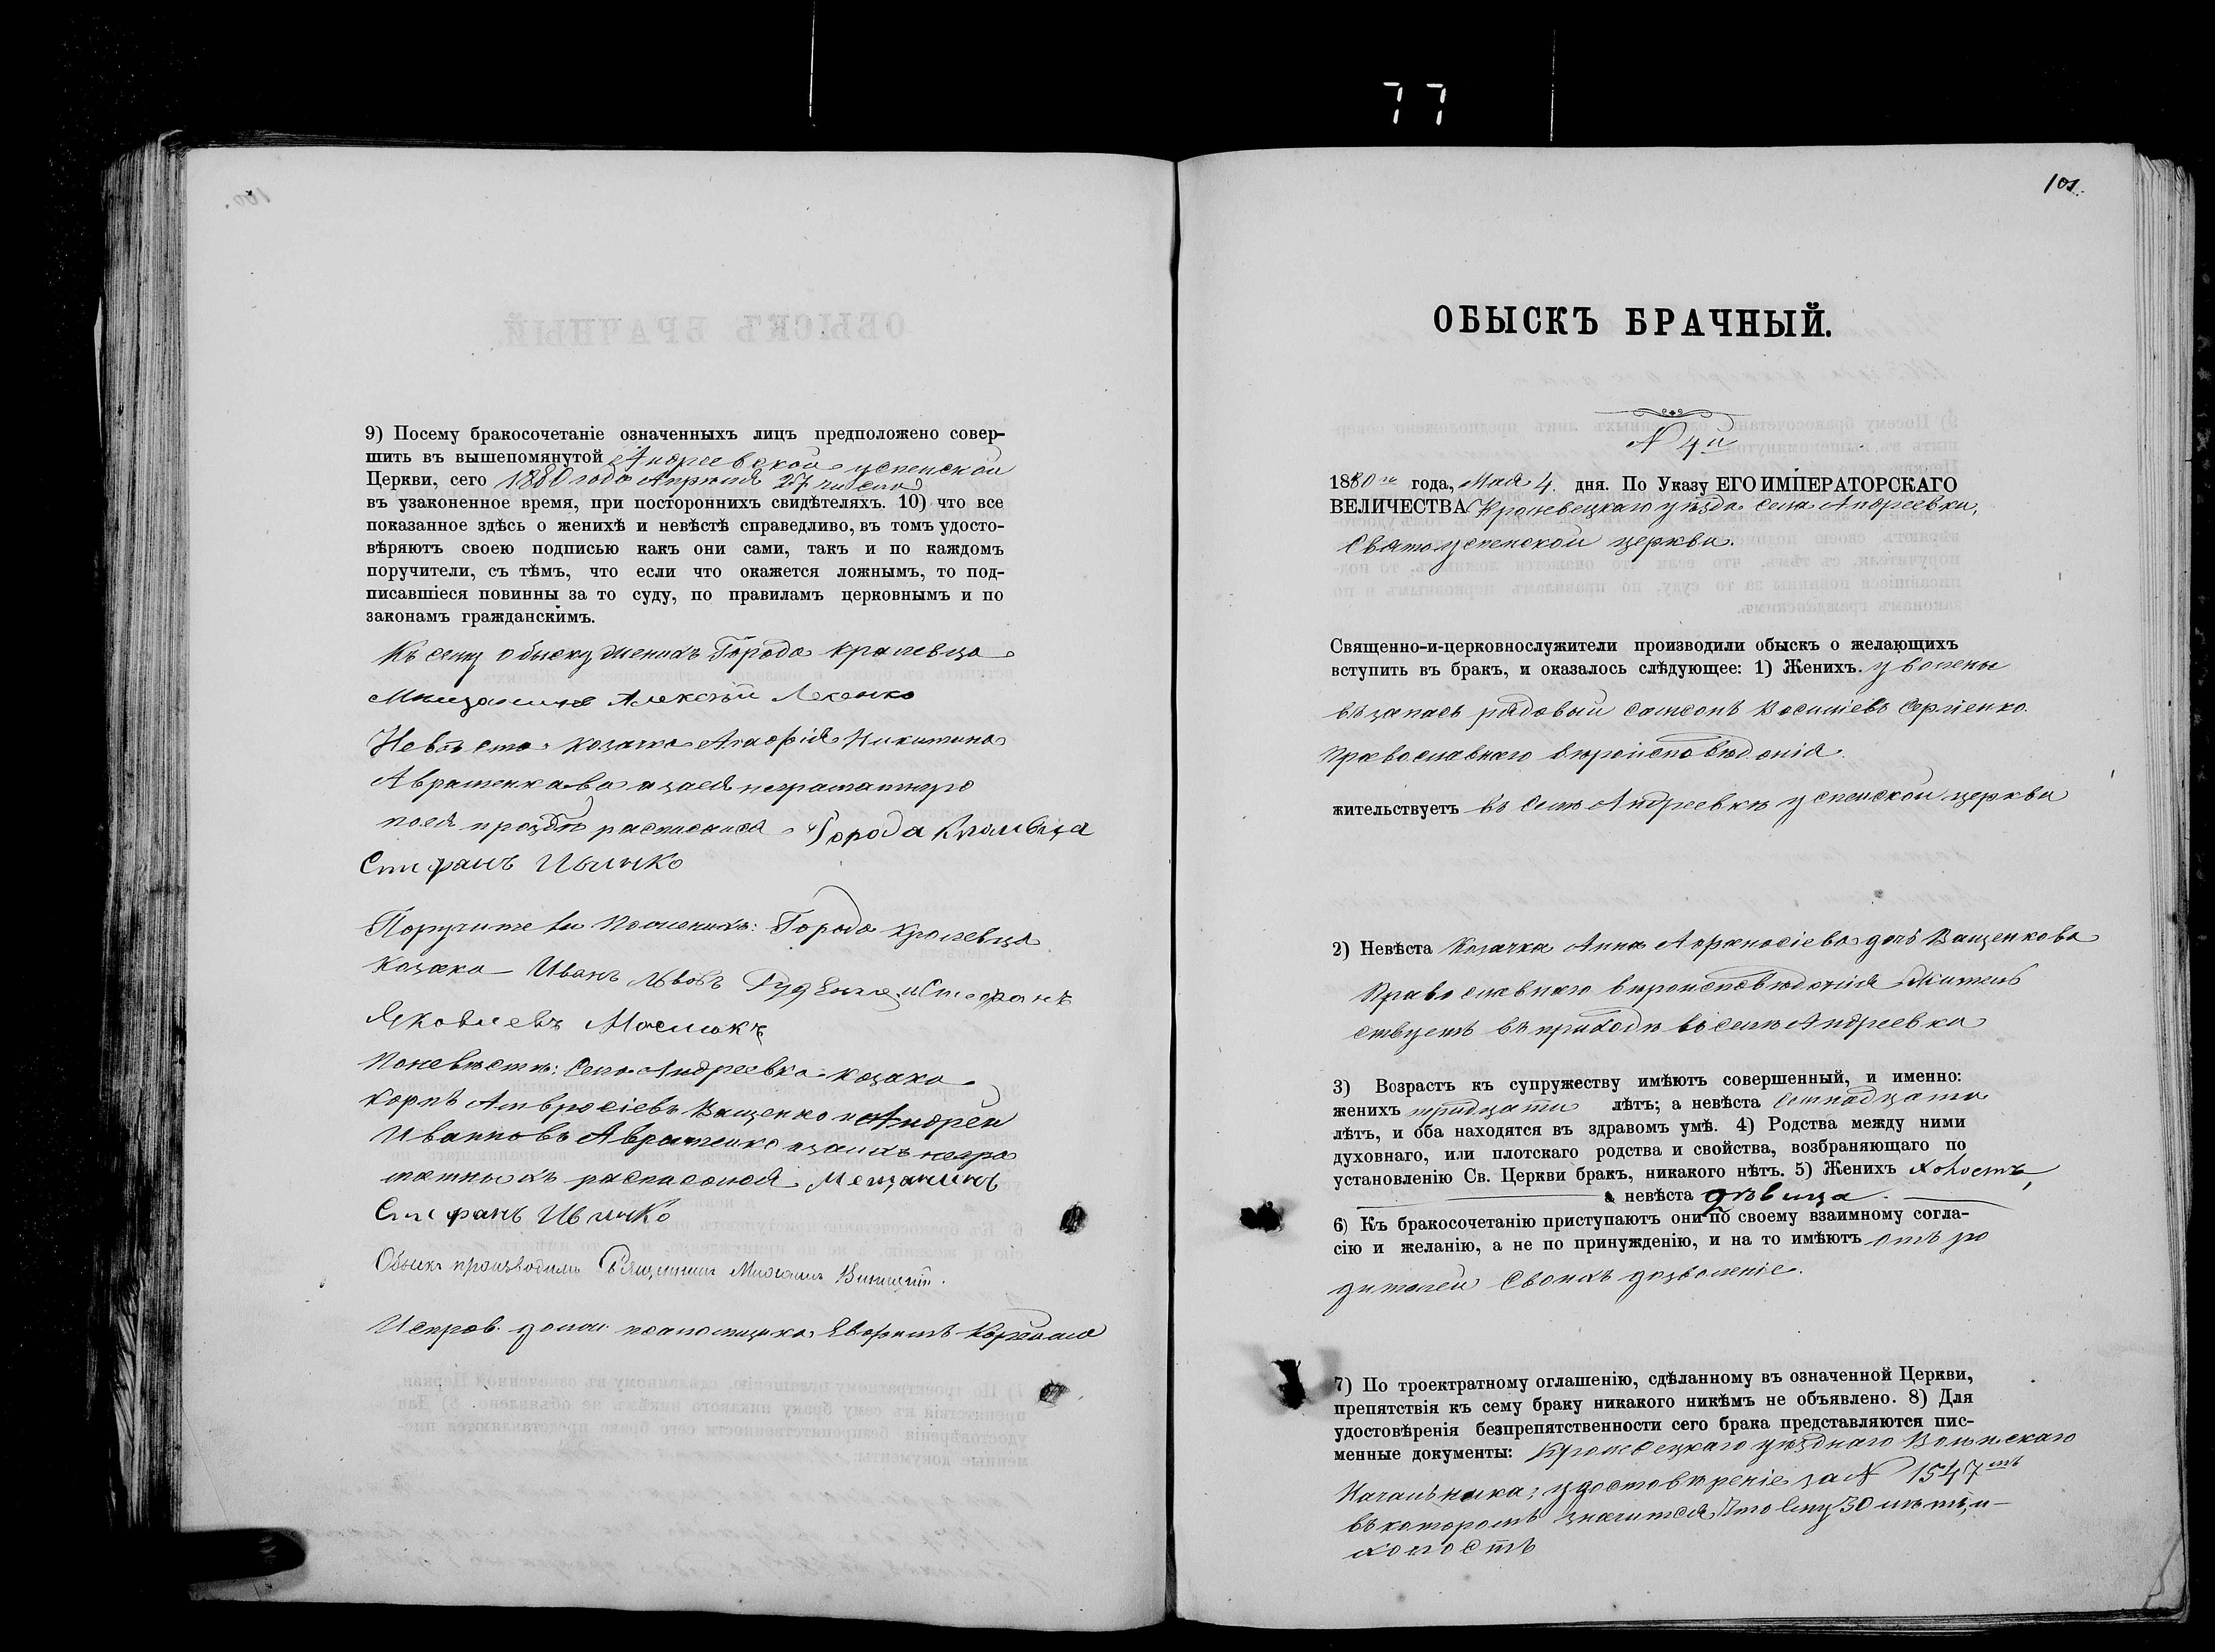 77
9) Посему бракосочетаніе означенныхъ лицъ предположено совер-
шить въ вышепомянутой Андреевской успенской
Церкви, сего 1880 года Апреля 27 числа
въ узаконенное время, при постороннихъ свидѣтеляхъ. 10) что все
показанное здѣсь о женихѣ и невѣстѣ справедливо, въ томъ удосто-
вѣряютъ своею подписью какъ они сами, такъ и по каждомъ
поручители, съ тѣмъ, что если что окажется ложнымъ, то под-
писавшіеся повинны за то суду, по правиламъ церковнымъ и по
законамъ гражданскимъ.
Къ сему обыску женихъ Города кролевца
Мищанинъ Алексѣй
Невѣста козачка Агафія Никитина
Авраменкова а заея неграматную
поея прозбѣ расписался Города Кролевца
Стефанъ Ивличко
Поручители пожениха: Города кролевца
Козаки Иванъ Львовъ и Стефанъ
Яковлевъ
Поневѣсти: Села Андреевки козаки
Амвросіевъ Ващенко и Андрей
Ивановъ Авраменко а заихъ негра
матныхъ расписался Мещанинъ
Стефанъ Ивличко
Обыскъ производилъ Священникъ
Исправ. долж. псаломщика Евфимъ
101.
ОБЫСКЪ БРАЧНЫЙ.
№ 4й
1880го года, Мая 4. дня. По Указу ЕГО ИМПЕРАТОРСКАГО
ВЕЛИЧЕСТВА Кролевецкаго уѣзда села Андреевки,
Святоуспенской церкви.
Священно-и-церковнослужители производили обыскъ о желающихъ
вступить въ бракъ, и оказалось слѣдующее: 1) Женихъ. уволены
въ запасъ рядовый Самсонъ Василіевъ Сергіенко.
Православнаго вѣроисповѣданія.
жительствуетъ въ селѣ Андреевки успенской церкви
2) Невѣста Козачка Анна Афанасіева дочь Ващенкова
Православнаго вѣроисповѣданія Житель
ствуетъ въ приходѣ въ селѣ Андреевки
3) Возрастъ къ супружеству имѣютъ совершенный, и именно:
женихъ тридцати лѣтъ; а невѣста семнадцати
лѣтъ, и оба находятся въ здравомъ умѣ. 4) Родства между ними
духовнаго, или плотскаго родства и свойства, возбраняющаго по
установленію Св. Церкви бракъ, никакого нѣтъ. 5) Женихъ холостъ,
а невѣста дѣвица.
6) Къ бракосочетанію приступаютъ они по своему взаимному согла-
сію и желанію, а не по принужденію, и на то имѣютъ отъ ро
дителей своихъ дозволеніе.
7) По троектратному оглашенію, сдѣланному въ означенной Церкви,
препятствія къ сему браку никакого никѣмъ не объявлено. 8) Для
удостовѣренія безпрепятственности сего брака представляются пис-
менные документы: Кролевецкаго уѣзднаго Воинскаго
Начальника; удостовѣреніе за № 1547мъ
въ которомъ значится Что ему 30 лѣтъ, и
холостъ